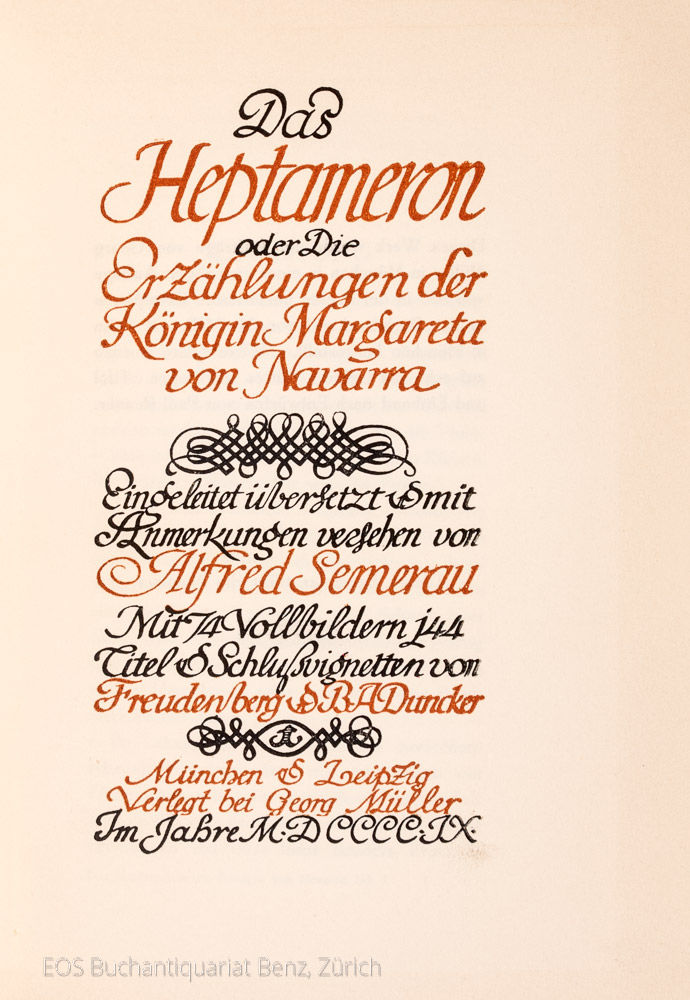 Das
Heptameron
oder Die
Erzählungen der
Königin Margareta
von Navarra
Eingeleitet übersetzt & mit
Anmerkungen versehen von
Alfred Semerau
Mit 74 Vollbildern 144
Titel & Schlußvignetten von
Freudenberg & B A Duncker
München & Leipzig
Verlegt bei Georg Müller
Im Jahre M·DCCCC·IX·
EOS Buchantiquariat Benz, Zürich